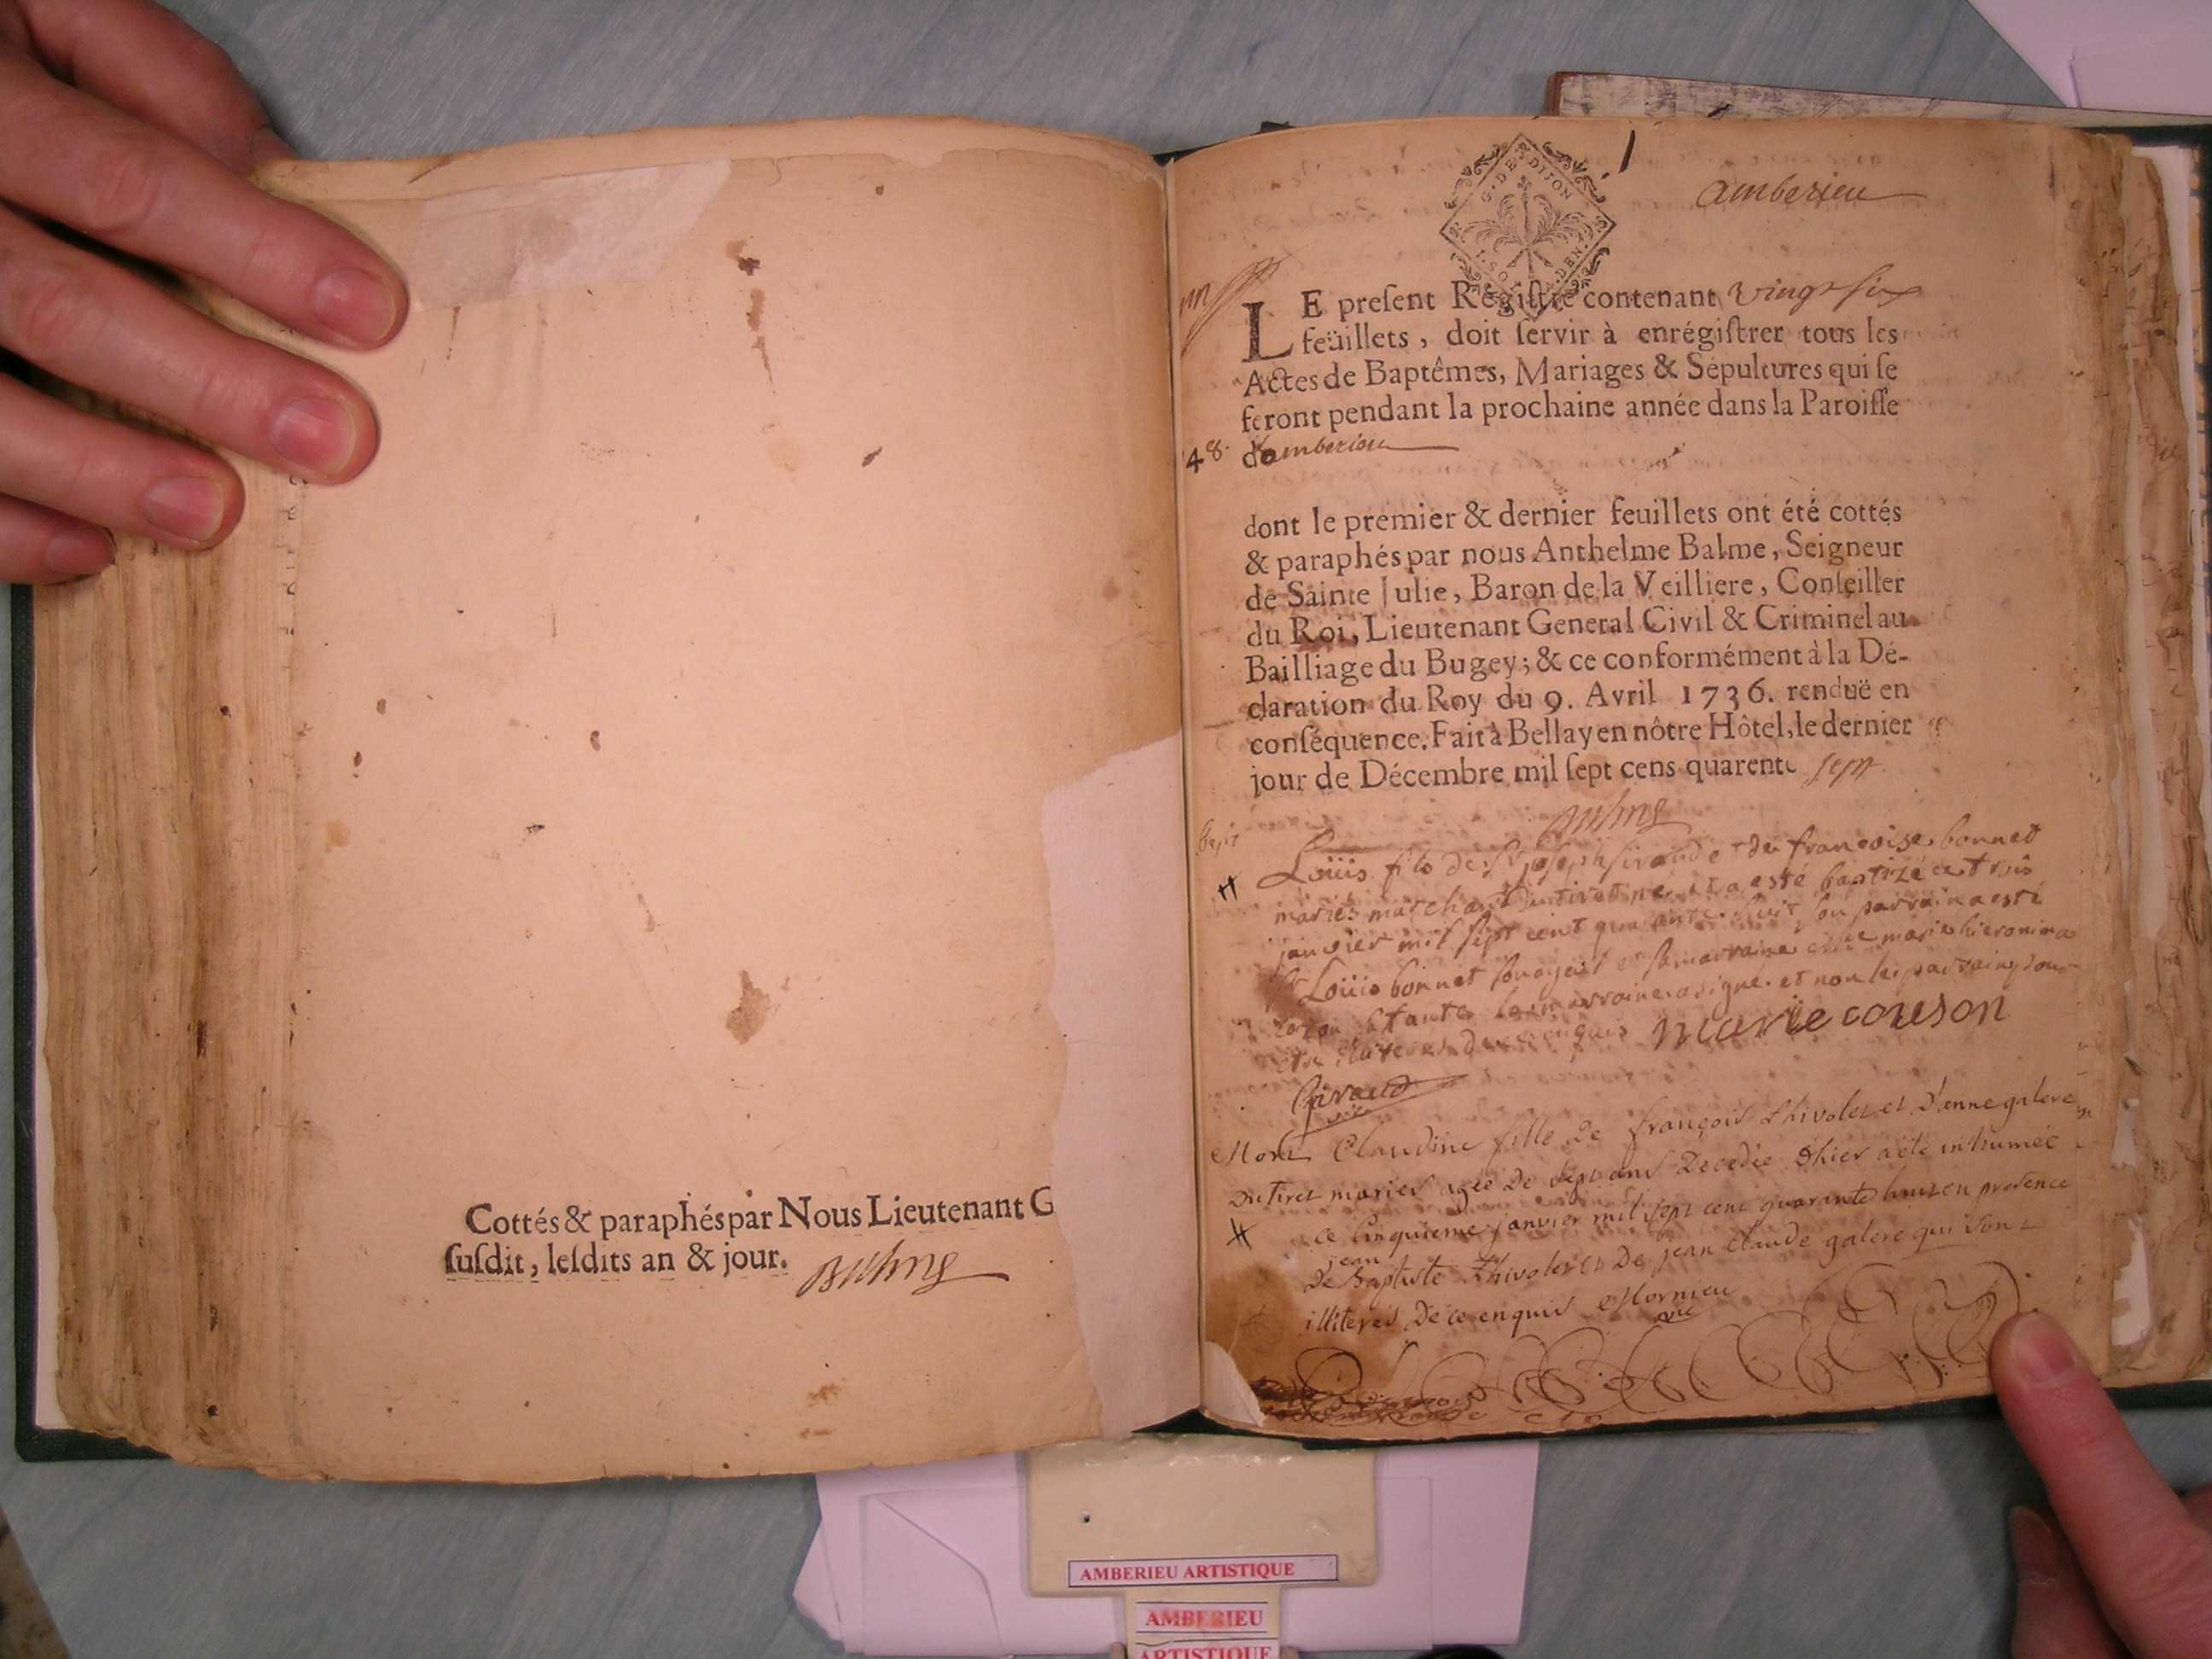 Cottés & paraphés par Nous Lieutenant G
susdit, lesdits an & jour.
1
G. DE DIJON
amberieu
LE present Régistre contenant vingt six
feüillets, doit servir à enrégistrer tous les
Actes de Baptêmes, Mariages & Sépultures qui se
feront pendant la prochaine année dans la Paroisse
48. d'amberieu
dont le premier & dernier feuillets ont été cottés
& paraphés par nous Anthelme Balme, Seigneur
de Sainte Julie, Baron de la Veilliere, Conseiller
du Roi, Lieutenant General Civil & Criminel au
Bailliage du Bugey; & ce conformément à la Dé-
claration du Roy du 9. Avril 1736. renduë en
conséquence. Fait à Bellay en nôtre Hôtel, le dernier
jour de Décembre mil sept cens quarente sept
Loüis fils de Sr Joseph sivaude & de francoise bonnet
mariés marchand du tiret né et a esté baptizé ce trois
janvier mil sept cent quarante huit son parrain a esté
Sr Loüis bonnet et sa marraine marie hieronima
tante la marraine a signé et non le parrain pour
enquis marie couson
Mort Claudine fille de françois Lhivolet et d'anne galere
du tiret mariés agée de sept ans decedée dhier a été inhumée
ce cinquieme janvier mil sept cent quarante huit en presence
de jean Baptiste Lhivolet et De jean claude galere qui sont
illiteres de ce enquis Mornieu
vic
AMBERIEU ARTISTIQUE
AMBERIEU
ARTISTIQUE